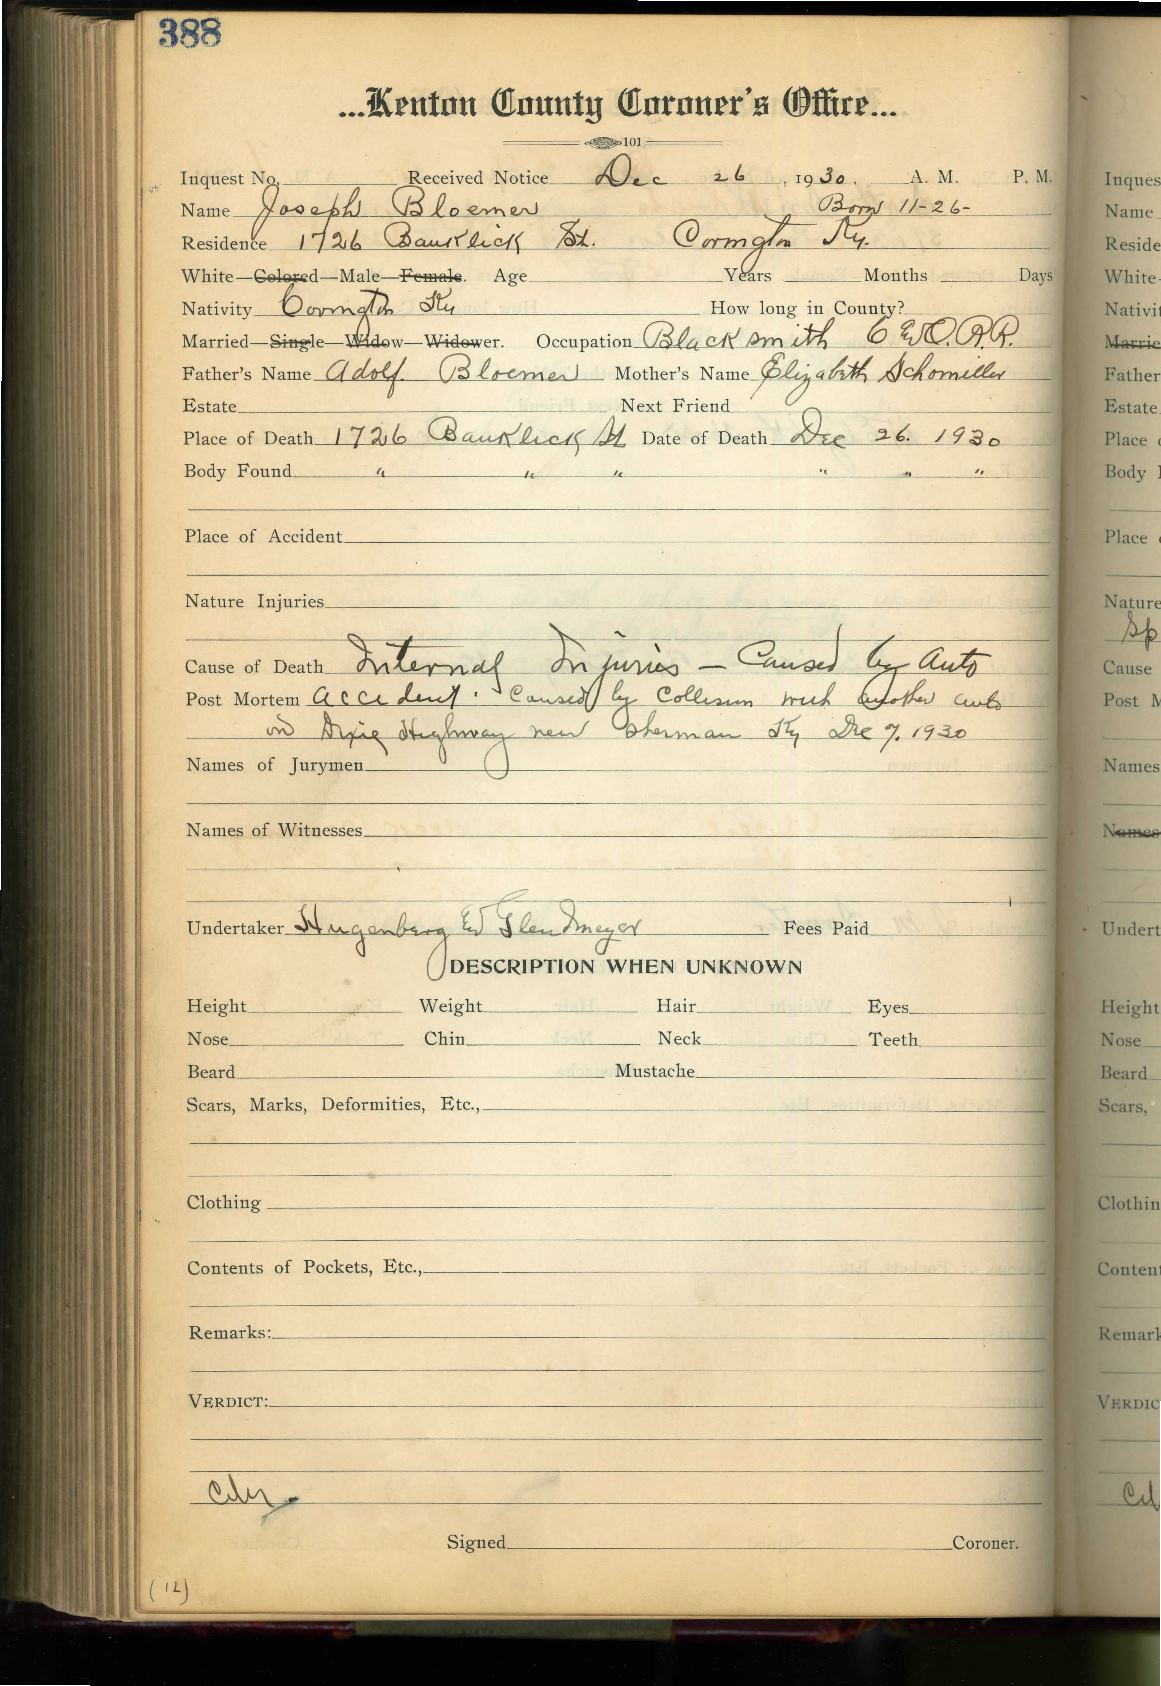 388
...Kenton County Coroner's Office...
101
Inquest No. Received Notice Dec 26, 1930. A. M. P. M.
Name Joseph Bloemer Born 11-26-
Residence 1726 Banklick St. Covington Ky.
White—Colored—Male—Female. Age Years Months Days
Nativity Covington Ky How long in County?
Married—Single—Widow—Widower. Occupation Blacksmith C & O. R.R.
Father's Name Adolf Bloemer Mother's Name Elizabeth Schomiller
Estate Next Friend
Place of Death 1726 Banklick St Date of Death Dec 26. 1930
Body Found " " " " " "
Place of Accident
Nature Injuries
Cause of Death Internal Injuries — Caused by Auto
Post Mortem accident. Caused by Collision with another auto
on Dixie Highway near Sherman Ky Dec 7, 1930
Names of Jurymen
Names of Witnesses
Undertaker Hugenberg & Glenmeyer Fees Paid
DESCRIPTION WHEN UNKNOWN
Height Weight Hair Eyes
Nose Chin Neck Teeth
Beard Mustache
Scars, Marks, Deformities, Etc.,
Clothing
Contents of Pockets, Etc.,
Remarks:
VERDICT:
Signed Coroner.
(12)
Inques
Name
Reside
White-
Nativit
Marrie
Father
Estate
Place
Body
Place
Nature
Sp
Cause
Post M
Names
Names
Undert
Height
Nose
Beard
Scars,
Clothin
Content
Remark
VERDIC